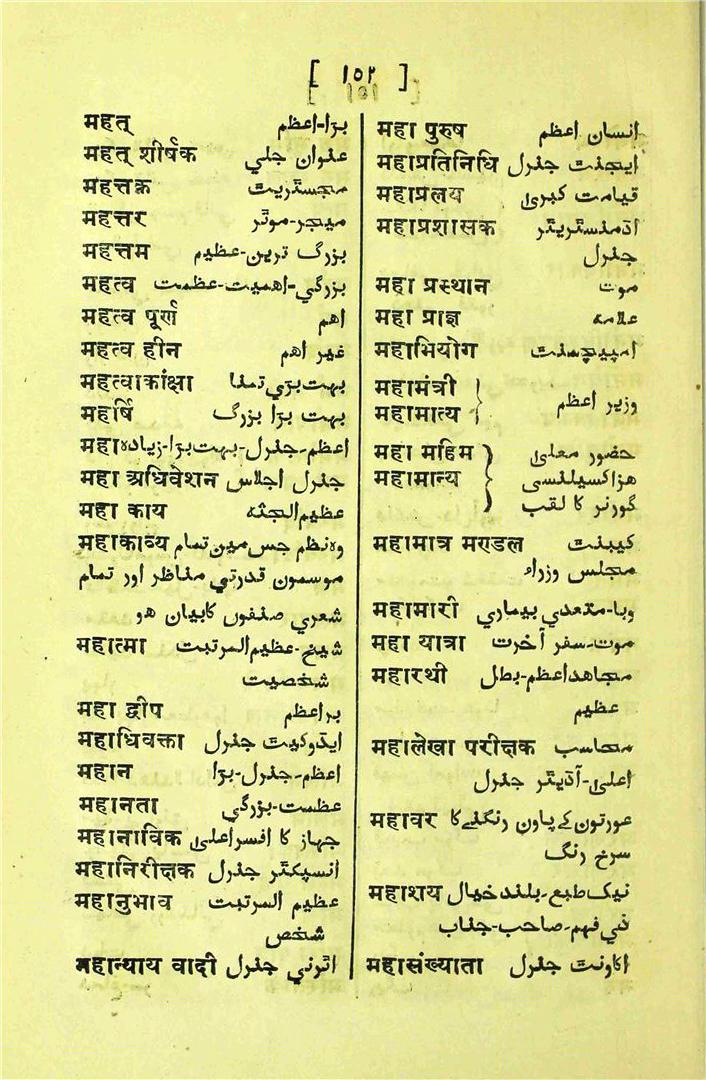 [ ۱۵۲ ]
महत् بڑا-اعظم
महत् शीर्षक عنوان جلی
महत्तक्र مجسٹریٹ
महत्तर میجر-موثر
महत्तम بزرگ ترین-عظیم
महत्व بزرگی-اهمیت-عظمت
महत्व पूर्ण اهم
महत्व हीन غیر اهم
महत्वाकांक्षा بہت بڑی تمنا
महर्षि بہت بڑا بزرگ
महा اعظم-جنرل-بہت بڑا-زیادہ
महा अधिवेशन جنرل اجلاس
महा काय عظیم الجثہ
महाकाव्य وہ نظم جس میں تمام
موسموں قدرتی مناظر اور تمام
شعری صنفوں کا بیان هو
महात्मा شیخ-عظیم المرتبت
شخصیت
महा द्वीप براعظم
महाधिवक्ता ایڈوکیٹ جنرل
महान اعظم-جنرل-بڑا
महानता عظمت-بزرگی
महानाविक جہاز کا افسر اعلیٰ
महानिरीक्षक انسپکٹر جنرل
महानुभाव عظیم المرتبت
شخص
महान्याय वादी اٹرنی جنرل
महा पुरुष انسان اعظم
महाप्रतिनिधि ایجنٹ جنرل
महाप्रलय قیامت کبریٰ
महाप्रशासक اڈمنسٹریٹر
جنرل
महा प्रस्थान موت
महा प्राज्ञ علامہ
महाभियोग امپیچمنٹ
महामंत्री
महामात्य } وزیر اعظم
महा महिम حضور معلیٰ
महामान्य } ہزاکسیلنسی
گورنر کا لقب
महामात्र मण्डल کیبنٹ
مجلس وزراء
महामारी وبا-متعدی بیماری
महा यात्रा موت-سفر آخرت
महारथी مجاهد اعظم-بطل
عظیم
महालेखा परीक्षक محاسب
اعلیٰ-آڈیٹر جنرل
महावर عورتوں کے پاوں رنگنے کا
سرخ رنگ
महाशय نیک طبع-بلند خیال
ذی فہم-صاحب-جناب
महासंख्याता اکاونٹ جنرل